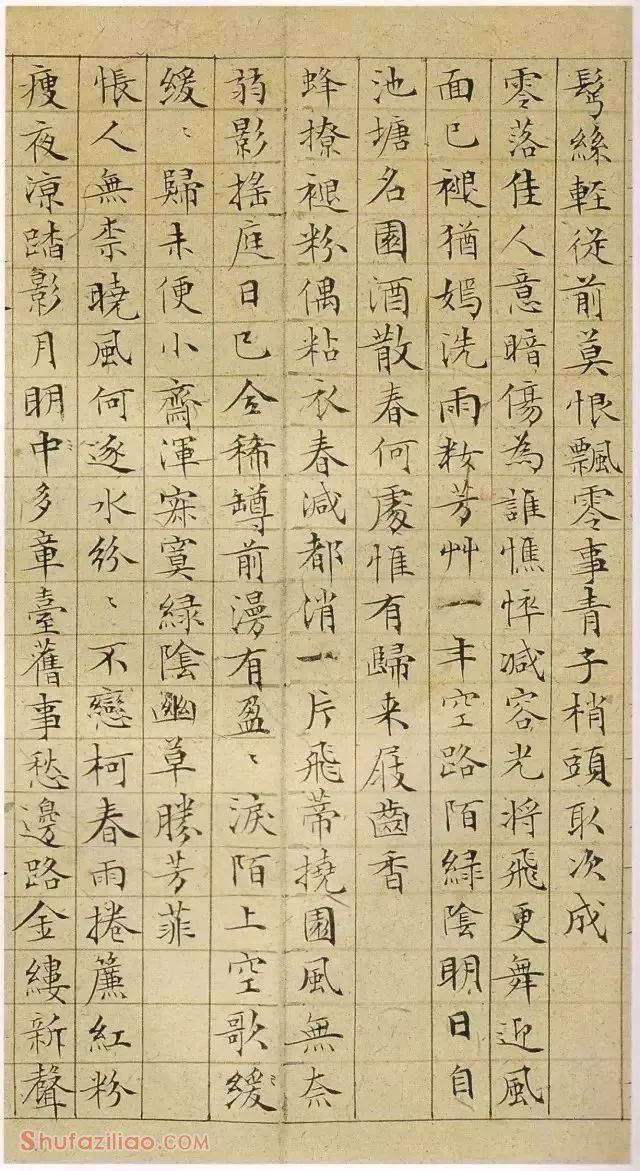 鬂絲輕從前莫恨飄零事青子梢頭取次成
零落佳人意暗傷為誰憔悴減容光將飛更舞迎風
面已褪猶嫣洗雨粧芳艸一年空路陌緑陰明日自
池塘名園酒散春何處惟有歸来屐齒香
蜂撩褪粉偶粘衣春減都消一片飛蒂撓園風無奈
弱影搖庭日已全稀罇前漫有盈〻淚陌上空歌緩
緩〻歸未便小齋渾寂寞緑陰幽草勝芳菲
悵人無柰曉風何逐水紛〻不戀柯春雨捲簾紅粉
瘦夜涼踏影月明中多章臺舊事愁邊路金縷新聲
Shufaziliao.com